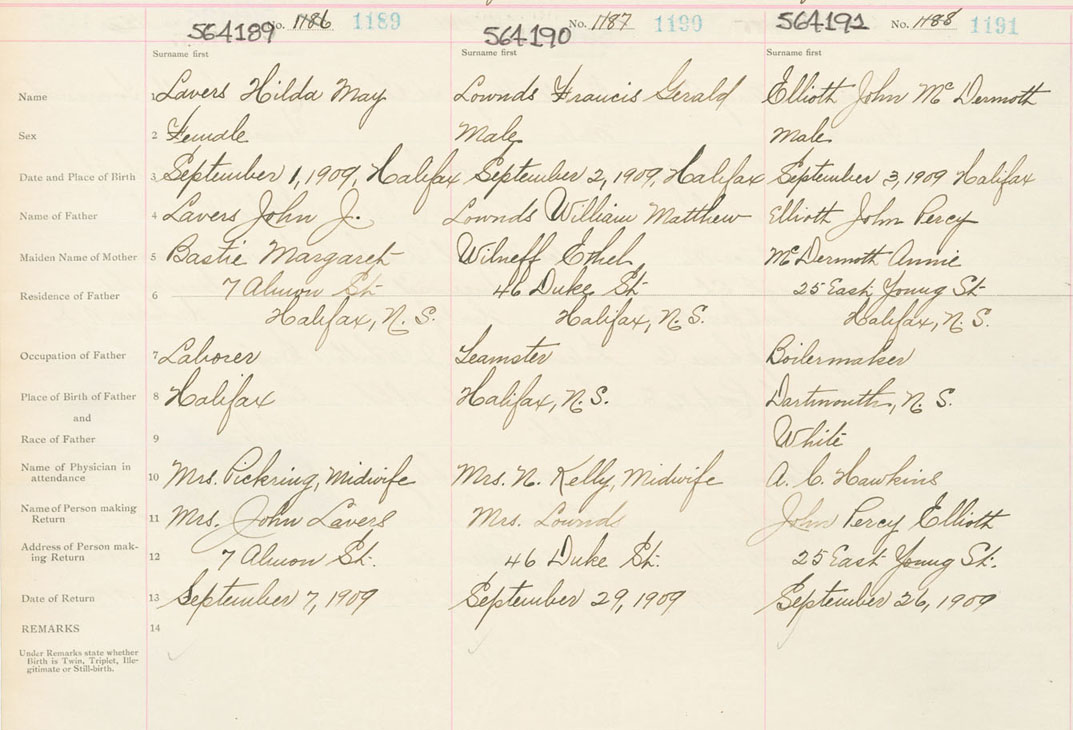 564189 No. 1186 1189 564190 No. 1187 1190 564191 No. 1188 1191
Surname first Surname first Surname first
Name 1 Lavers Hilda May Lownds Francis Gerald Elliott John McDermott
Sex 2 Female Male Male
Date and Place of Birth 3 September 1, 1909, Halifax September 2, 1909, Halifax September 3, 1909 Halifax
Name of Father 4 Lavers John J. Lownds William Matthew Elliott John Percy
Maiden Name of Mother 5 Bastie Margaret Wilneff Ethel McDermott Annie
Residence of Father 6 7 Almon St. 46 Duke St. 25 East Young St.
Halifax, N.S. Halifax, N.S. Halifax, N.S.
Occupation of Father 7 Laborer Teamster Boilermaker
Place of Birth of Father 8 Halifax Halifax, N.S. Dartmouth, N.S.
and
Race of Father 9 White
Name of Physician in
attendance 10 Mrs. Pickring, Midwife Mrs. N. Kelly, Midwife A. C. Hawkins
Name of Person making
Return 11 Mrs. John Lavers Mrs. Lownds John Percy Elliott
Address of Person mak-
ing Return 12 7 Almon St. 46 Duke St. 25 East Young St.
Date of Return 13 September 7, 1909 September 29, 1909 September 26, 1909
REMARKS 14
Under Remarks state whether
Birth is Twin, Triplet, Ille-
gitimate or Still-birth.